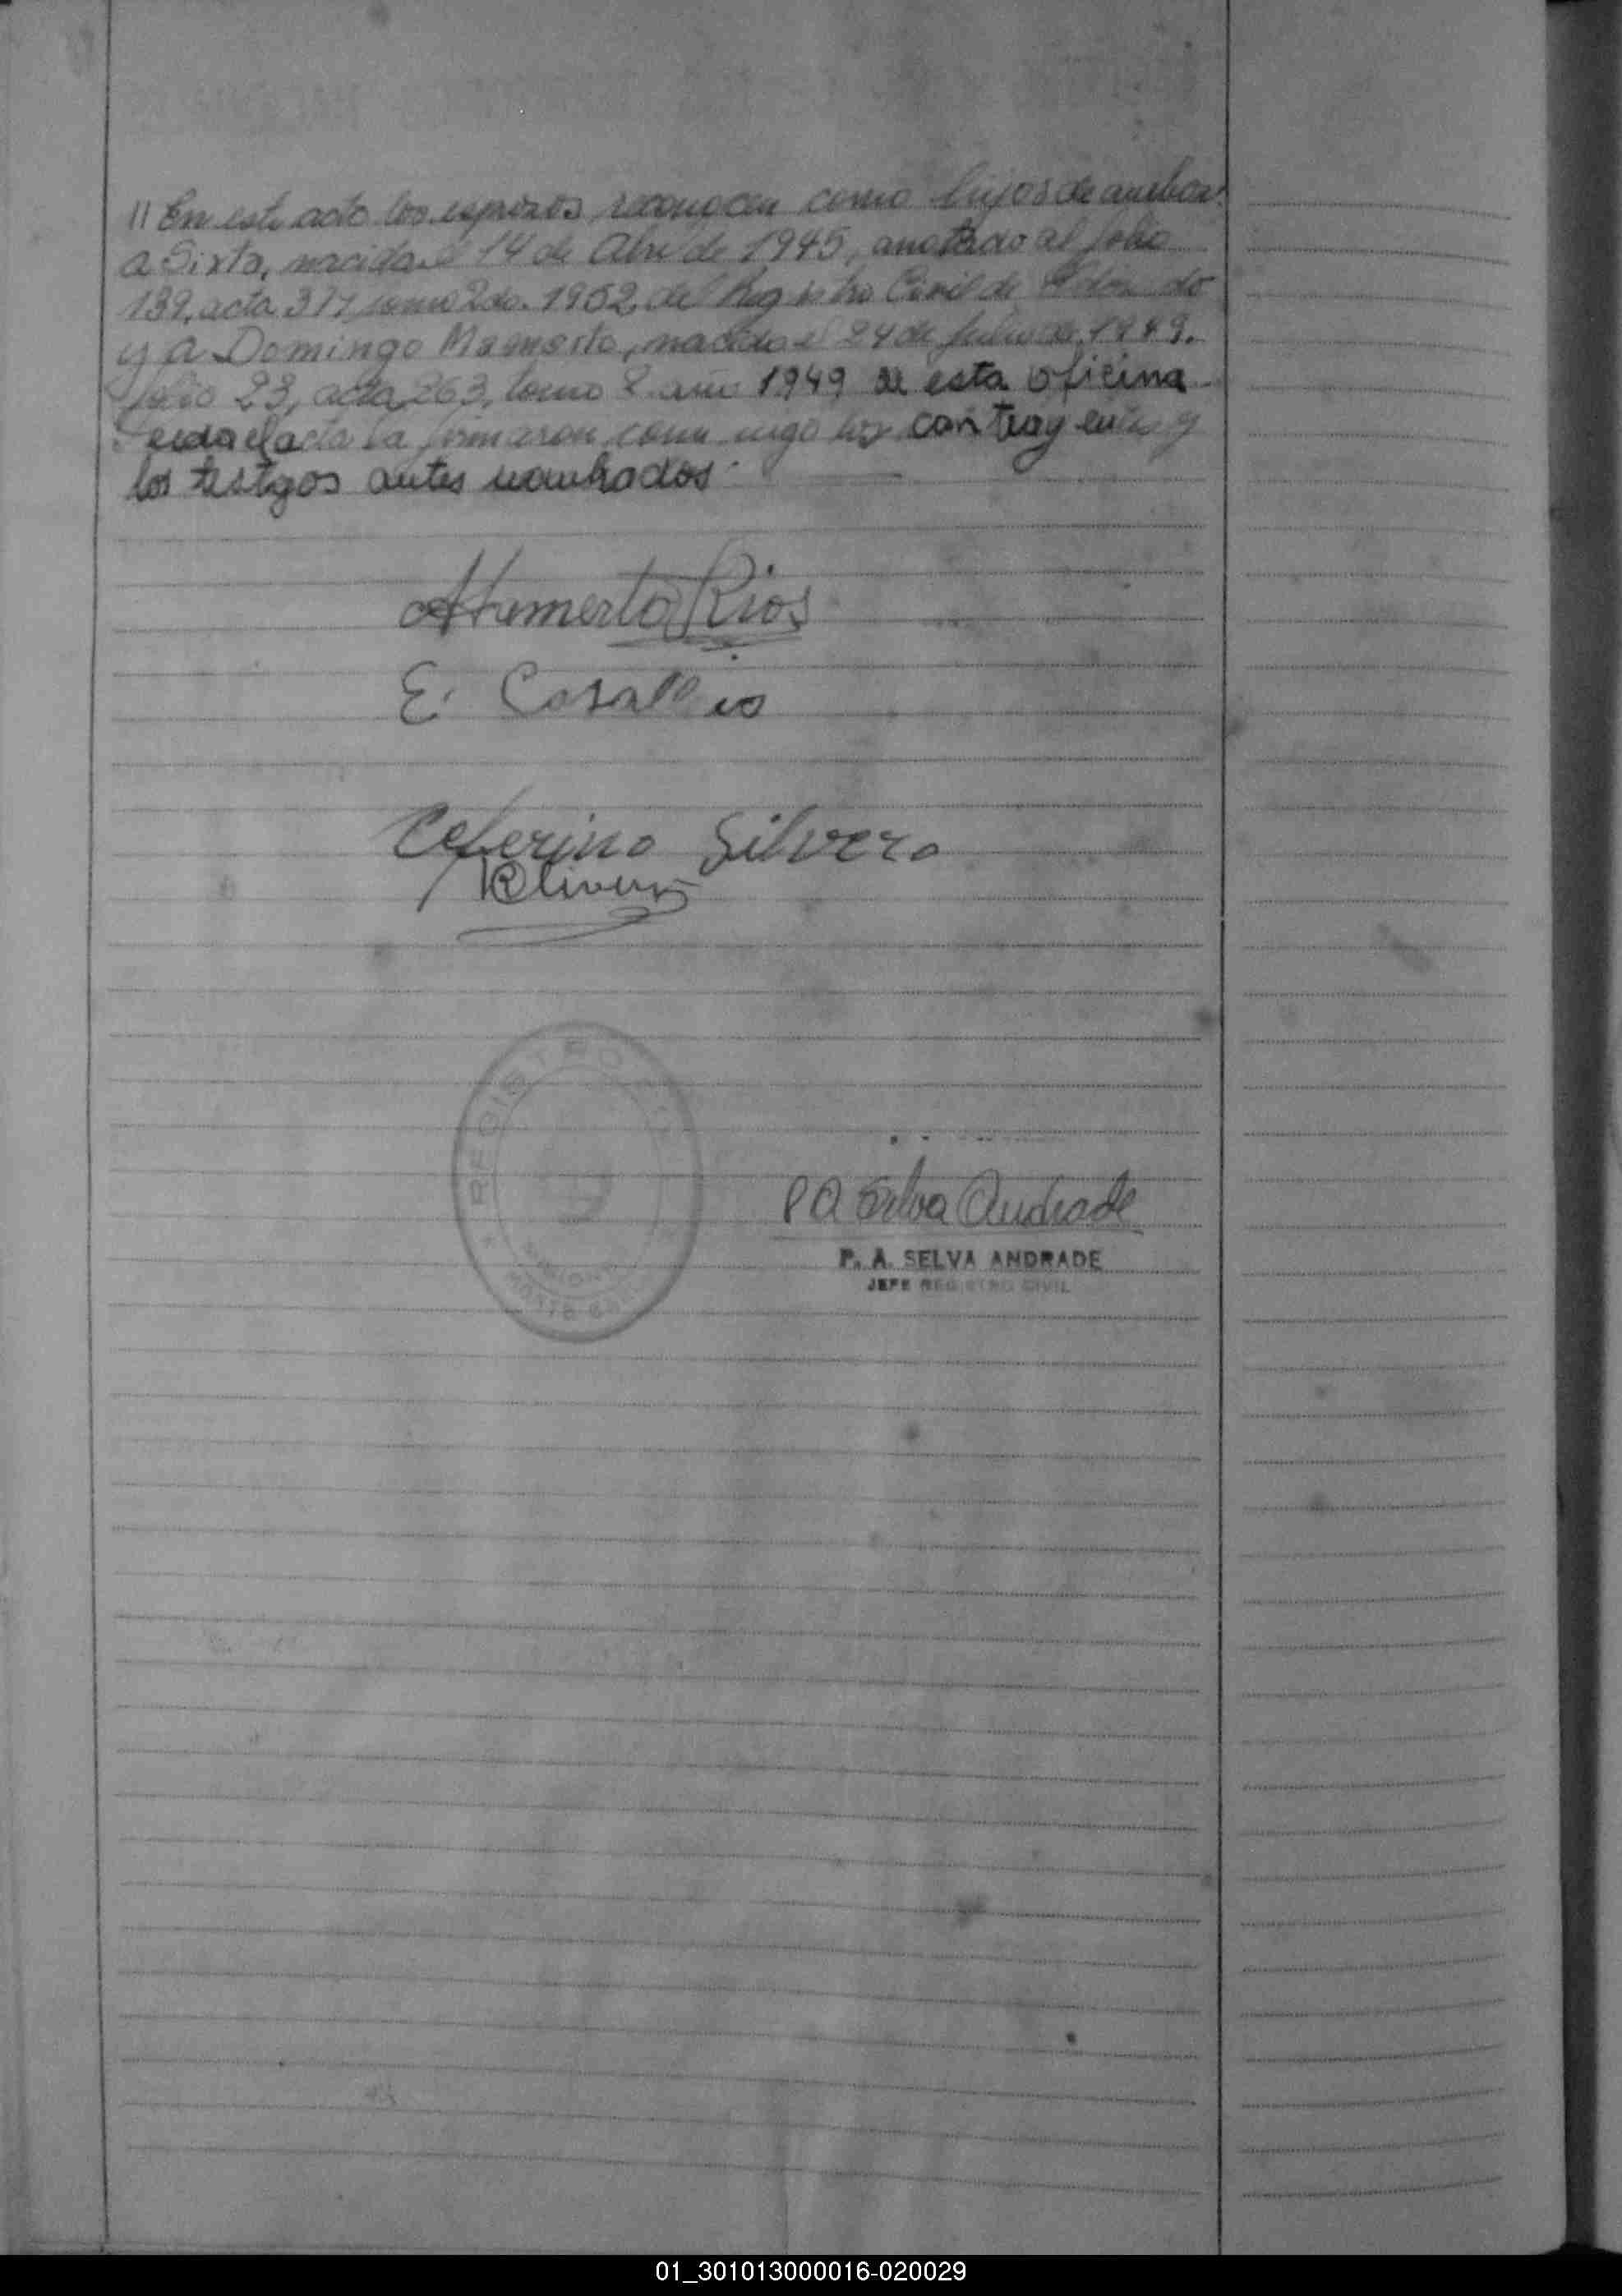 // En este acto los esposos reconocen como hijos de ambos:
a Sixto, nacido el 14 de Abril de 1945, anotado al folio
139, acta 377 tomo 2do. 1952, del Registro Civil de
y a Domingo Mamerto, nacido el 24 de Julio de 1949.
folio 23, acta 263, tomo 2 año 1949 de esta oficina
Leida el acta la firmaron conmigo los contrayentes y
los testigos antes nombrados.
Rios
E.
Ceferino Silvero
REGISTRO
P A Selva Andrade
P. A. SELVA ANDRADE
JEFE REGISTRO CIVIL
01_301013000016-020029